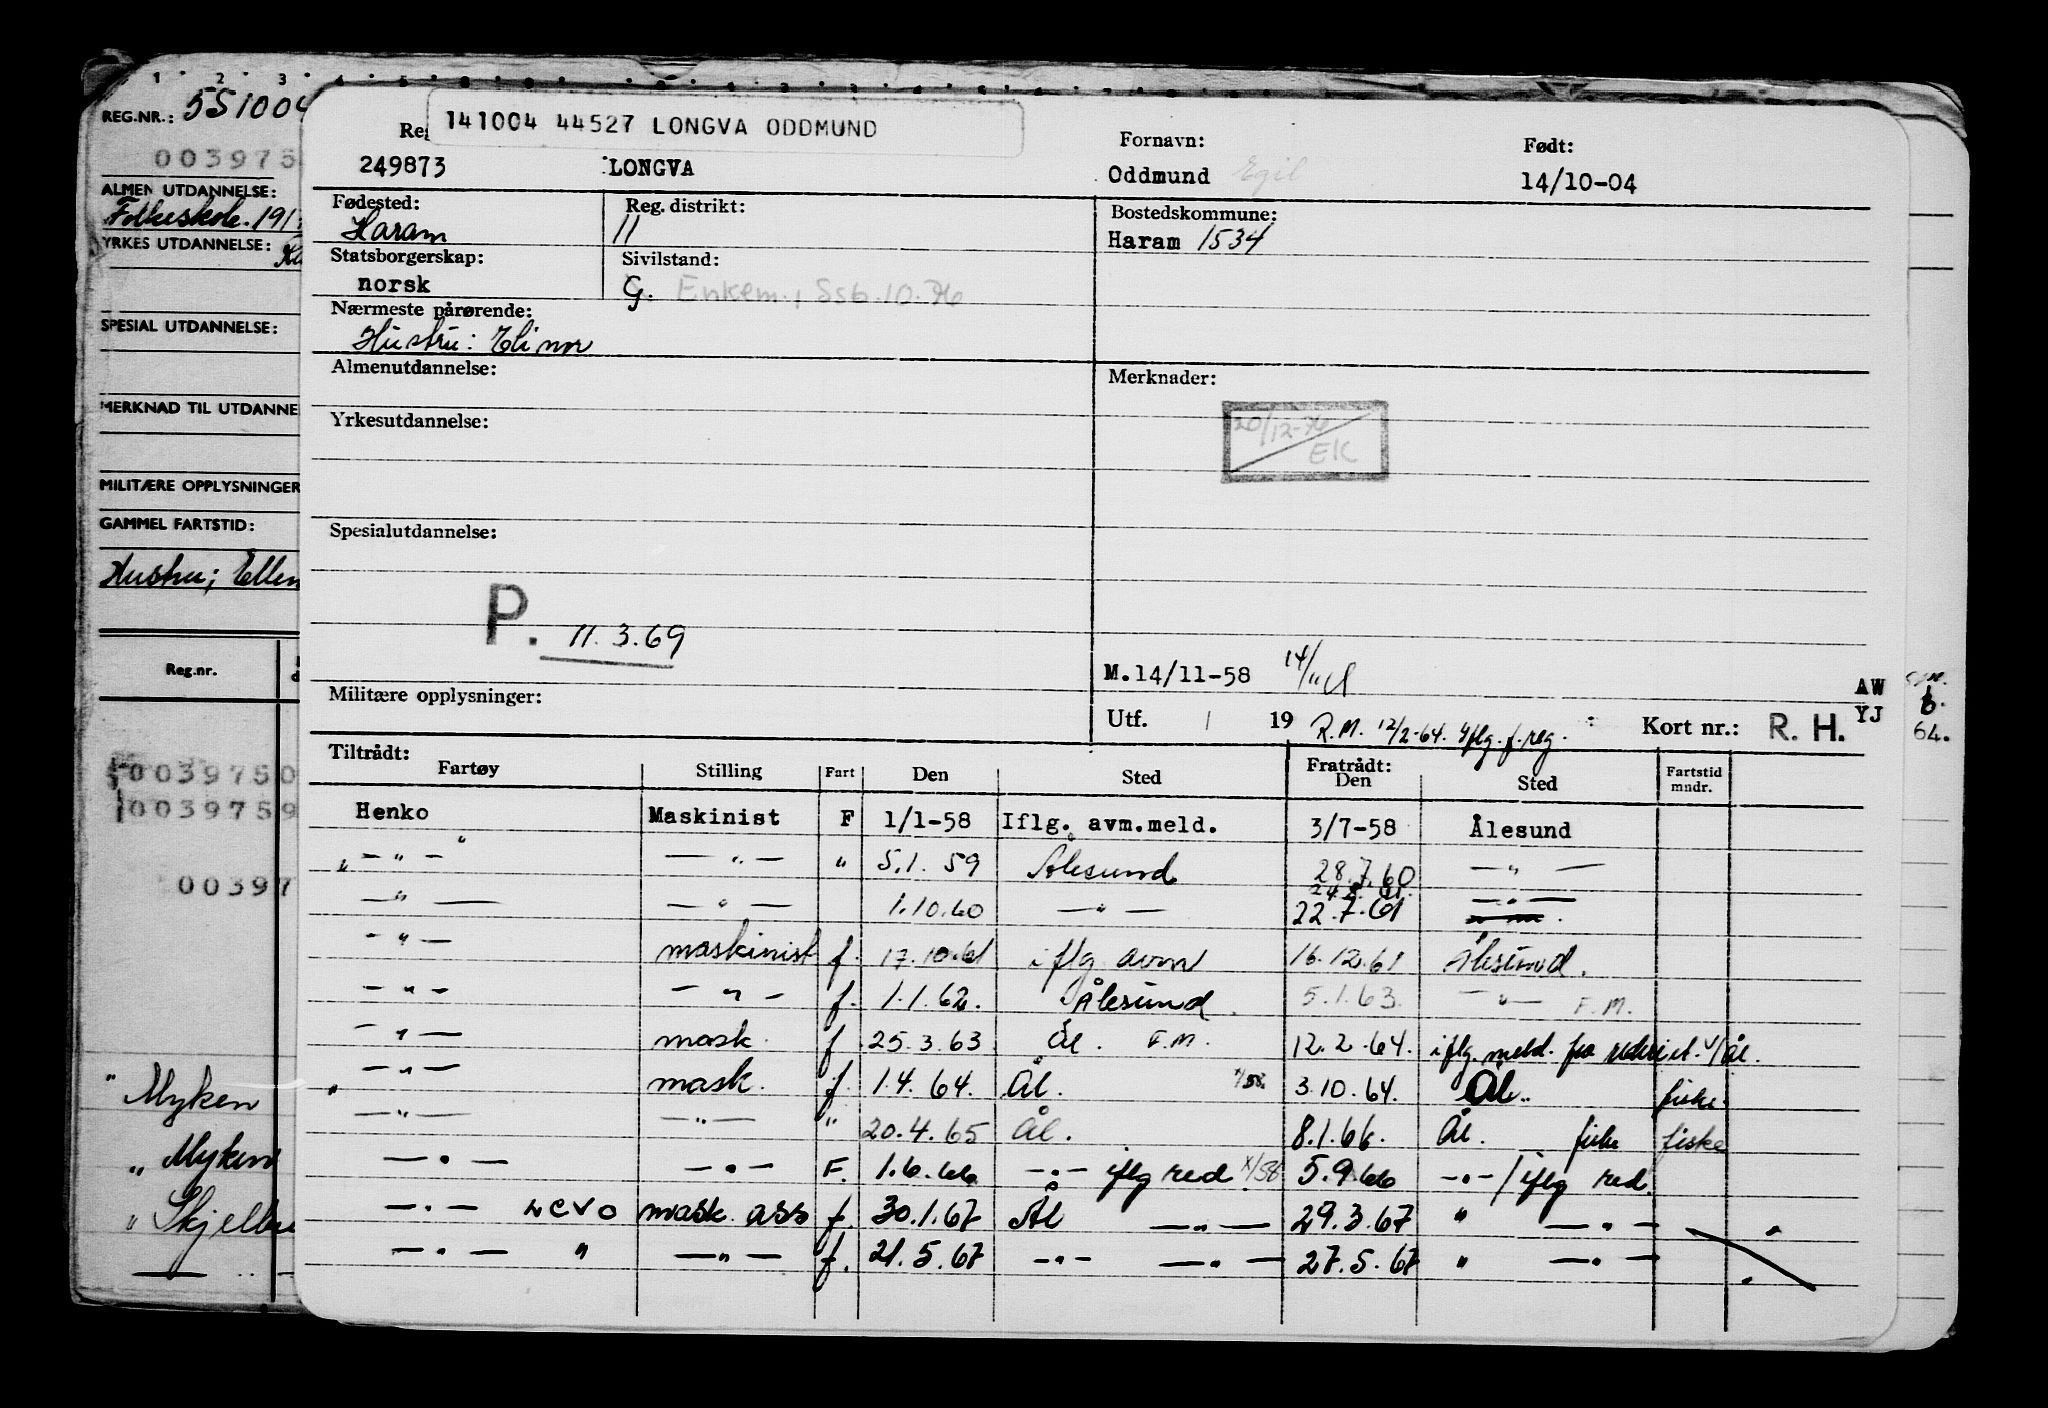 REG.NR.: 5S1004
003975
ALMEN UTDANNELSE:
Folkeskole. 191
YRKES UTDANNELSE:
SPESIAL UTDANNELSE:
MERKNAD TIL UTDANNE
MILITÆRE OPPLYSNINGER
GAMMEL FARTSTID:
Hustru; Ellen
Reg.nr.
0039750
0039759
00397
" Myken
" Myken
" Skjelbre
141004 44527 LONGVA ODDMUND
Reg Fornavn: Født:
249873 LONGVA Oddmund Egil 14/10-04
Fødested: Reg. distrikt: Bostedskommune:
Haram 11 Haram 1534
Statsborgerskap: Sivilstand:
norsk G. Enkem., Ssb. 10.76
Nærmeste pårørende:
Hustru: Elinor
Almenutdannelse: Merknader:
Yrkesutdannelse: 20/12-76
EK
Spesialutdannelse:
P. 11.3.69
M.14/11-58 14/11 AW
Militære opplysninger: Utf. 1 19 R.M. 12/2-64. iflg. f. reg. Kort nr.: R. H. YJ
64.
Tiltrådt: Fratrådt:
Fartøy Stilling Fart Den Sted Den Sted Fartstid mndr.
Henko Maskinist F 1/1-58 Iflg. avm.meld. 3/7-58 Ålesund
" — " — — " — " 5.1.59 Ålesund 28.7.60 — " —
— " — — " — 1.10.60 — " — 22.7.61 — " —
— " — maskinist f. 17.10.61 iflg avm 16.12.61 Ålesund.
— " — — " — f. 1.1.62. Ålesund 5.1.63. — " — F.M.
— " — mask. f 25.3.63 Ål. F.M. 12.2.64. iflg. meld. fra rederiet. /Ål.
" — " — mask. f. 1.4.64. Ål. x/58. 3.10.64. Ål. fiske.
— " — — " — " 20.4.65 Ål. 8.1.66. Ål. fiske fiske
— " — — " — F. 1.6.66 — " — iflg red. x/58 5.9.66 — " — / iflg red.
— " — LCVO mask. ass f. 30.1.67 Ål — " — 29.3.67 " — " —
— " — " — " — f. 21.5.67 — " — — " — 27.5.67 " — " —